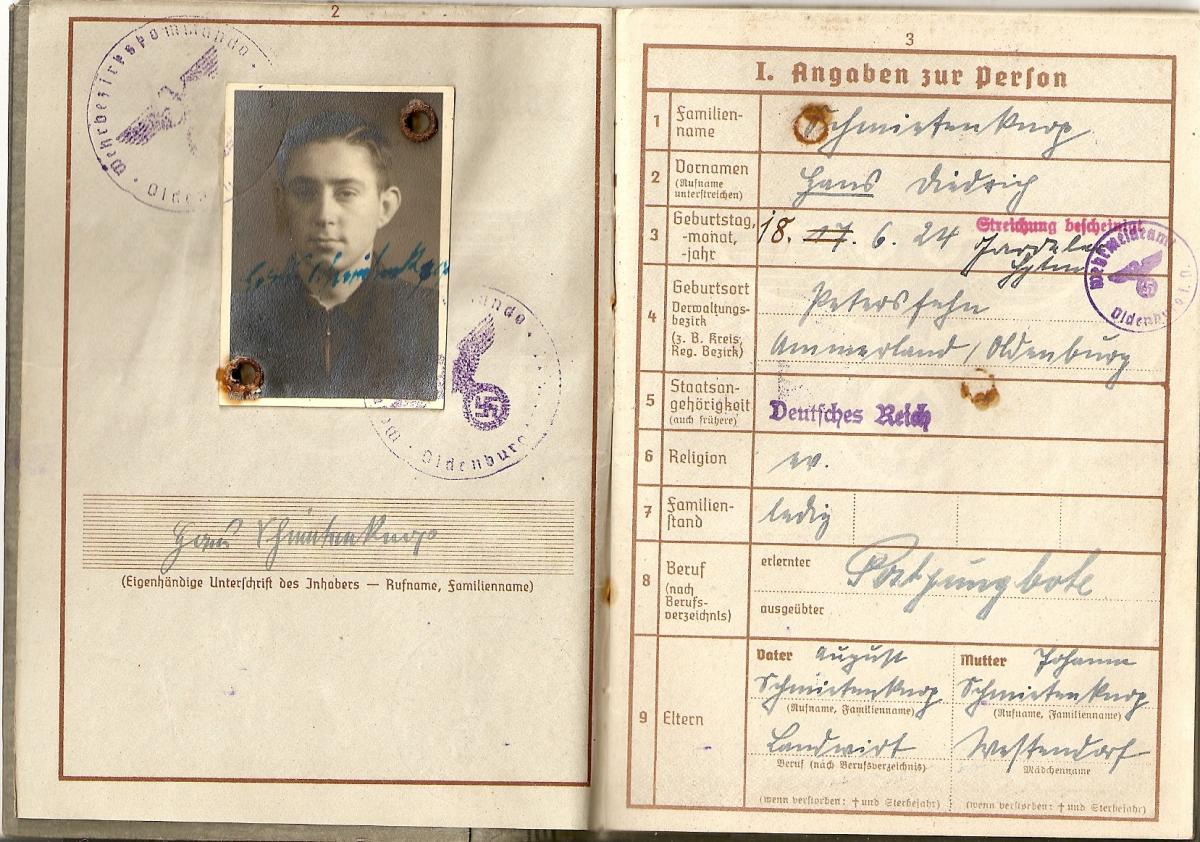 2
Wehrbezirkskommando
Oldenburg
Hans Schmietenknop
(Eigenhändige Unterschrift des Inhabers — Rufname, Familienname)
3
I. Angaben zur Person
1 Familien-
name
Schmietenknop
2 Vornamen
(Rufname
unterstreichen)
Hans Diedrich
3 Geburtstag,
-monat,
-jahr
18. 17. 6. 24
Streichung bescheinigt
Wehrmeldeamt
Oldenburg i.O.
4 Geburtsort
Verwaltungs-
bezirk
(z. B. Kreis,
Reg. Bezirk)
Petersfehn
Ammerland / Oldenburg
5 Staatsan-
gehörigkeit
(auch frühere)
Deutsches Reich
6 Religion
ev.
7 Familien-
stand
ledig
8 Beruf
(nach
Berufs-
verzeichnis)
erlernter
Postjungbote
ausgeübter
9 Eltern
Vater August
Schmietenknop
(Rufname, Familienname)
Landwirt
Beruf (nach Berufsverzeichnis)
(wenn verstorben: † und Sterbejahr)
Mutter Johanne
Schmietenknop
(Rufname, Familienname)
Westendorf
Mädchenname
(wenn verstorben: † und Sterbejahr)